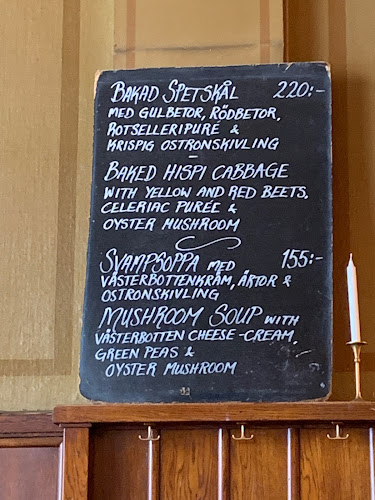 BAKAD SPETSKÅL 220:-
MED GULBETOR, RÖDBETOR,
ROTSELLERIPURÉ &
KRISPIG OSTRONSKIVLING
-
BAKED HISPI CABBAGE
WITH YELLOW AND RED BEETS,
CELERIAC PURÉE &
OYSTER MUSHROOM
SVAMPSOPPA MED 155:-
VÄSTERBOTTENKRÄM, ÄRTOR &
OSTRONSKIVLING
MUSHROOM SOUP WITH
VÄSTERBOTTEN CHEESE-CREAM,
GREEN PEAS &
OYSTER MUSHROOM